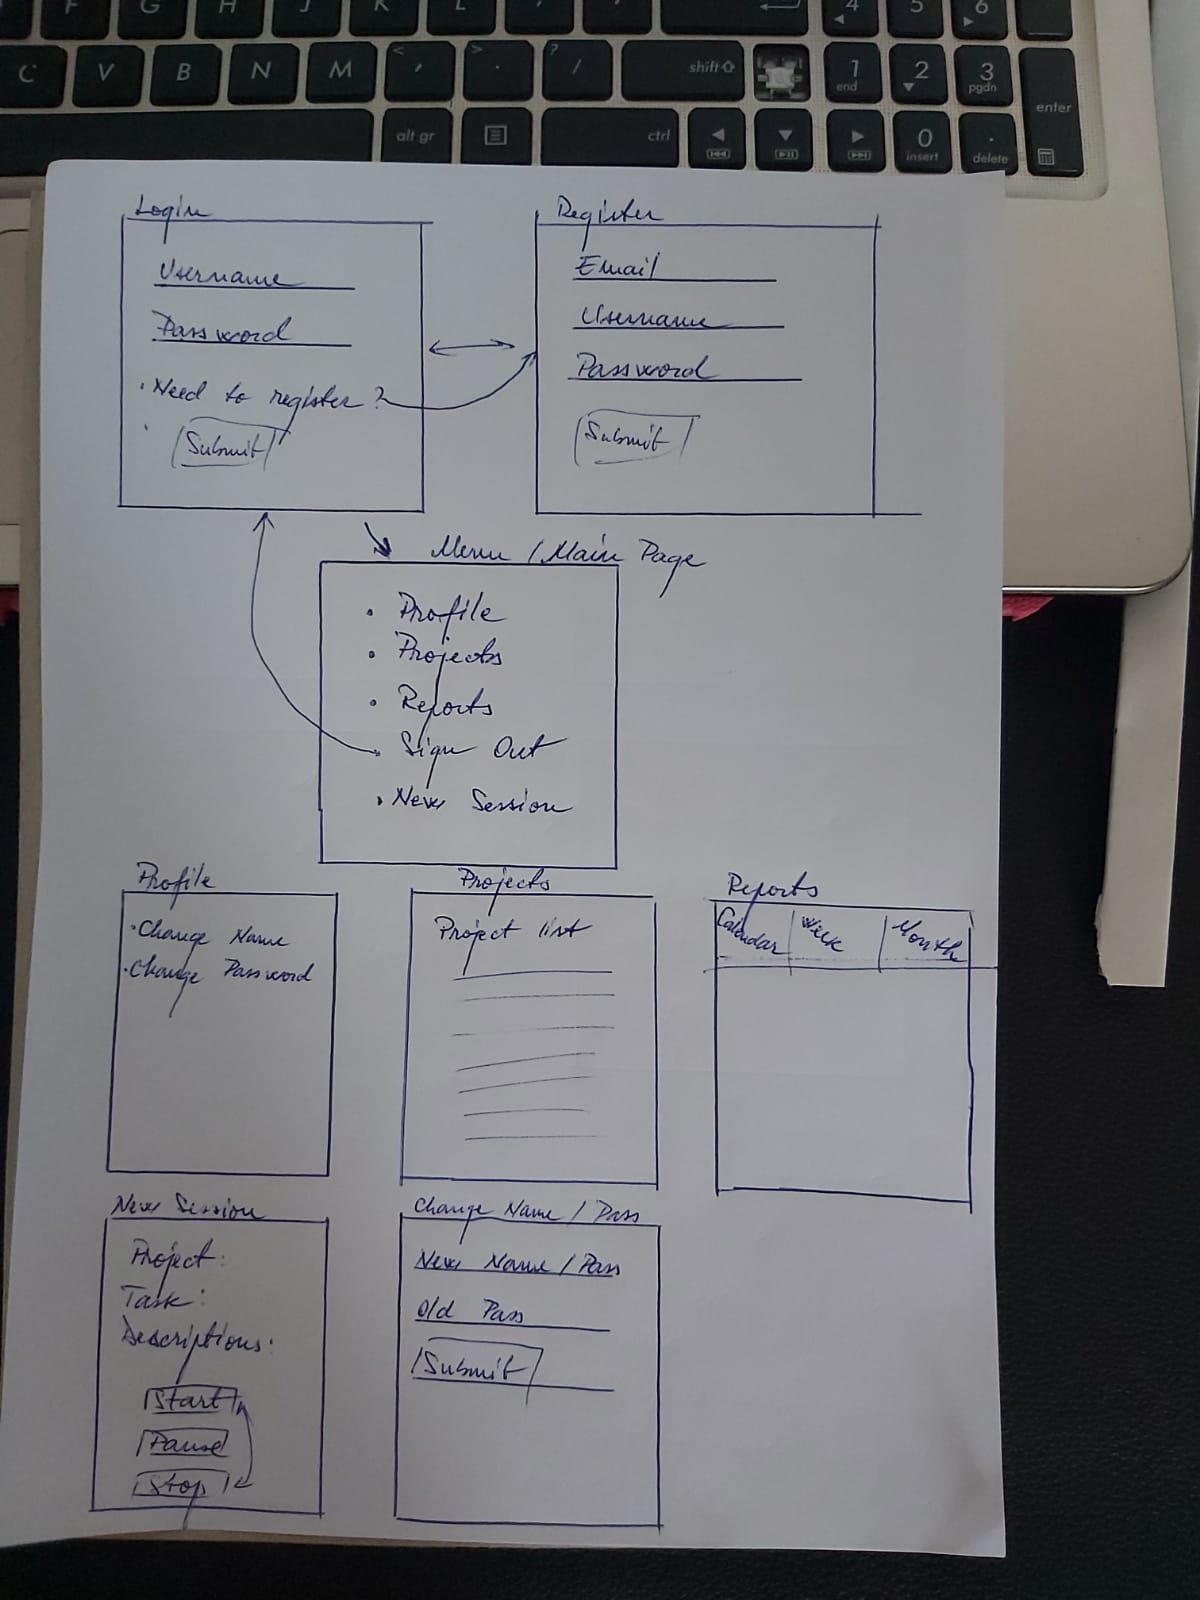 F G H J K L
4 5 6
C V B N M < , > . ? / shift 1 end 2 3 pgdn
alt gr ctrl 0 insert . delete enter
Login
Username
Password
· Need to register?
Submit
Register
Email
Username
Password
Submit
Menu / Main Page
• Profile
• Projects
• Reports
• Sign Out
• New Session
Profile
· Change Name
· Change Password
Projects
Project list
Reports
Calendar Week Month
New Session
Project:
Task:
Descriptions:
Start
Pause
Stop
Change Name / Pass
New Name / Pass
Old Pass
Submit